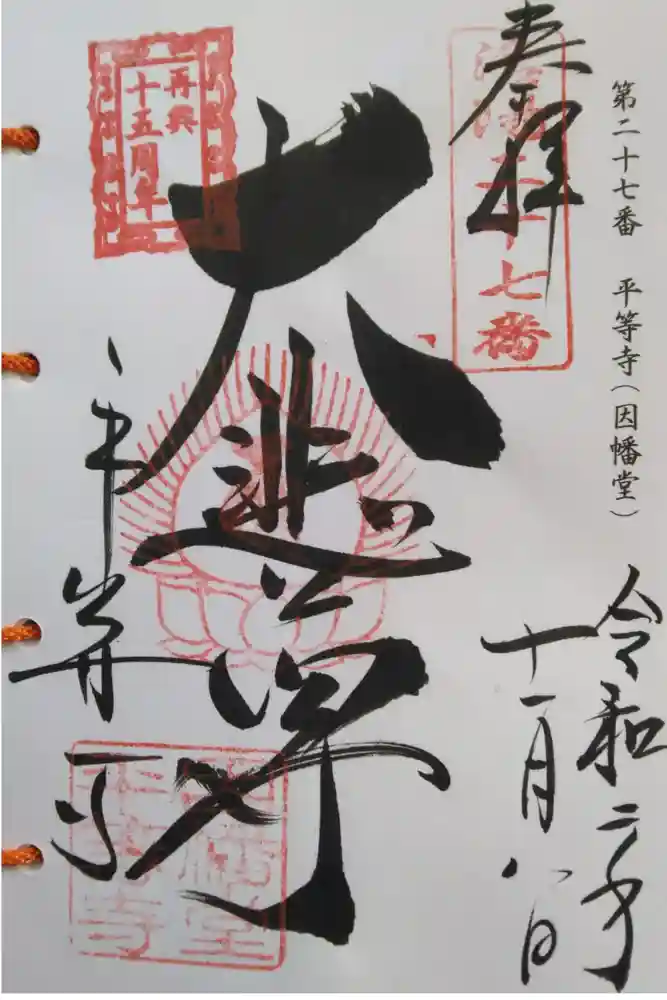 第二十七番 平等寺(因幡堂)
奉拝
洛陽二十七番
令和二年
十一月八日
再興
十五周年
大悲尊
平等寺
因幡堂
平等寺